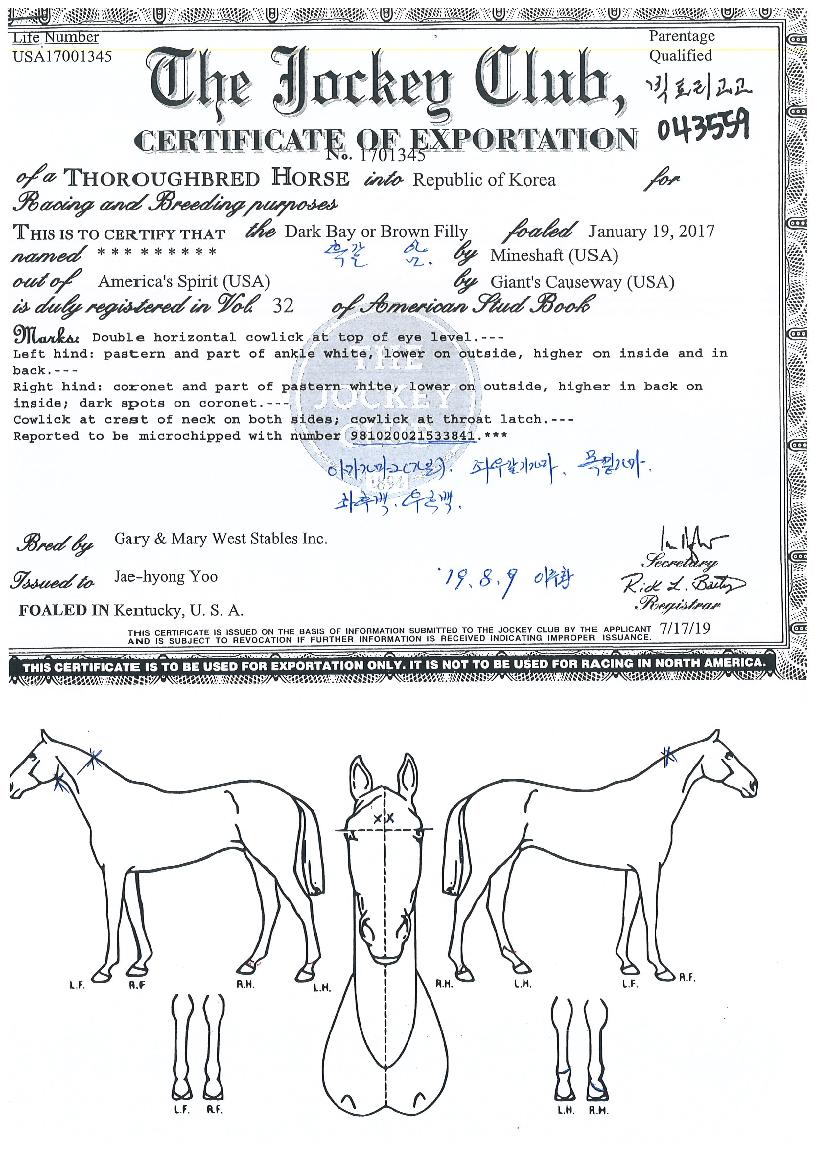 Life Number
USA17001345
Parentage
Qualified
The Jockey Club,
빅토리고고
043559
CERTIFICATE OF EXPORTATION
No. 1701345
of a THOROUGHBRED HORSE into Republic of Korea for
Racing and Breeding purposes
THIS IS TO CERTIFY THAT the Dark Bay or Brown Filly foaled January 19, 2017
named * * * * * * * * * 흑갈 암. by Mineshaft (USA)
out of America's Spirit (USA) by Giant's Causeway (USA)
is duly registered in Vol. 32 of American Stud Book
Marks: Double horizontal cowlick at top of eye level.---
Left hind: pastern and part of ankle white, lower on outside, higher on inside and in
back.---
Right hind: coronet and part of pastern white, lower on outside, higher in back on
inside; dark spots on coronet.---
Cowlick at crest of neck on both sides; cowlick at throat latch.---
Reported to be microchipped with number 981020021533841.***
THE
JOCKEY
CLUB
1894
좌후백.
Bred by Gary & Mary West Stables Inc.
Secretary
Issued to Jae-hyong Yoo
'19. 8. 9
Rick L. Bailey
Registrar
FOALED IN Kentucky, U. S. A.
THIS CERTIFICATE IS ISSUED ON THE BASIS OF INFORMATION SUBMITTED TO THE JOCKEY CLUB BY THE APPLICANT
AND IS SUBJECT TO REVOCATION IF FURTHER INFORMATION IS RECEIVED INDICATING IMPROPER ISSUANCE.
7/17/19
THIS CERTIFICATE IS TO BE USED FOR EXPORTATION ONLY. IT IS NOT TO BE USED FOR RACING IN NORTH AMERICA.
L.F. R.F R.H. L.H. R.H. L.H. L.F. R.F.
L.F. R.F. L.H. R.H.